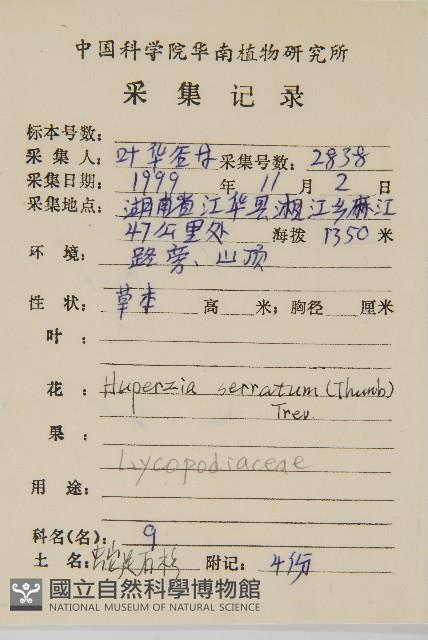 中国科学院华南植物研究所
采集记录
标本号数:
采集人: 叶华谷 采集号数: 2838
采集日期: 1999 年 11 月 2 日
采集地点: 湖南省江华县湘江乡麻江
47公里处 海拨 1350 米
环境: 路旁、山顶
性状: 草本 高 米; 胸径 厘米
叶:
花: Huperzia serratum (Thunb.)
Trev.
果:
Lycopodiaceae
用途:
科名(名): 9
土名: 石杉 附记: 4份
國立自然科學博物館
NATIONAL MUSEUM OF NATURAL SCIENCE